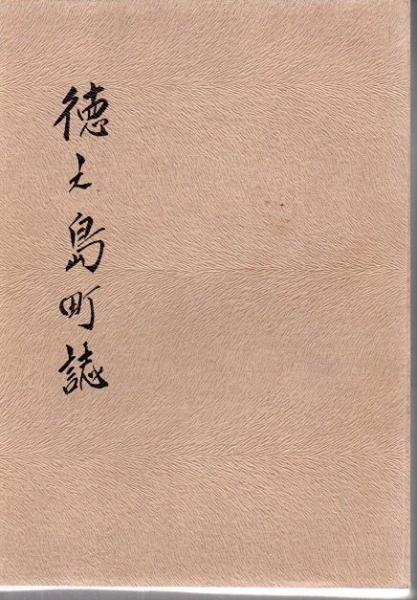 徳之島町誌